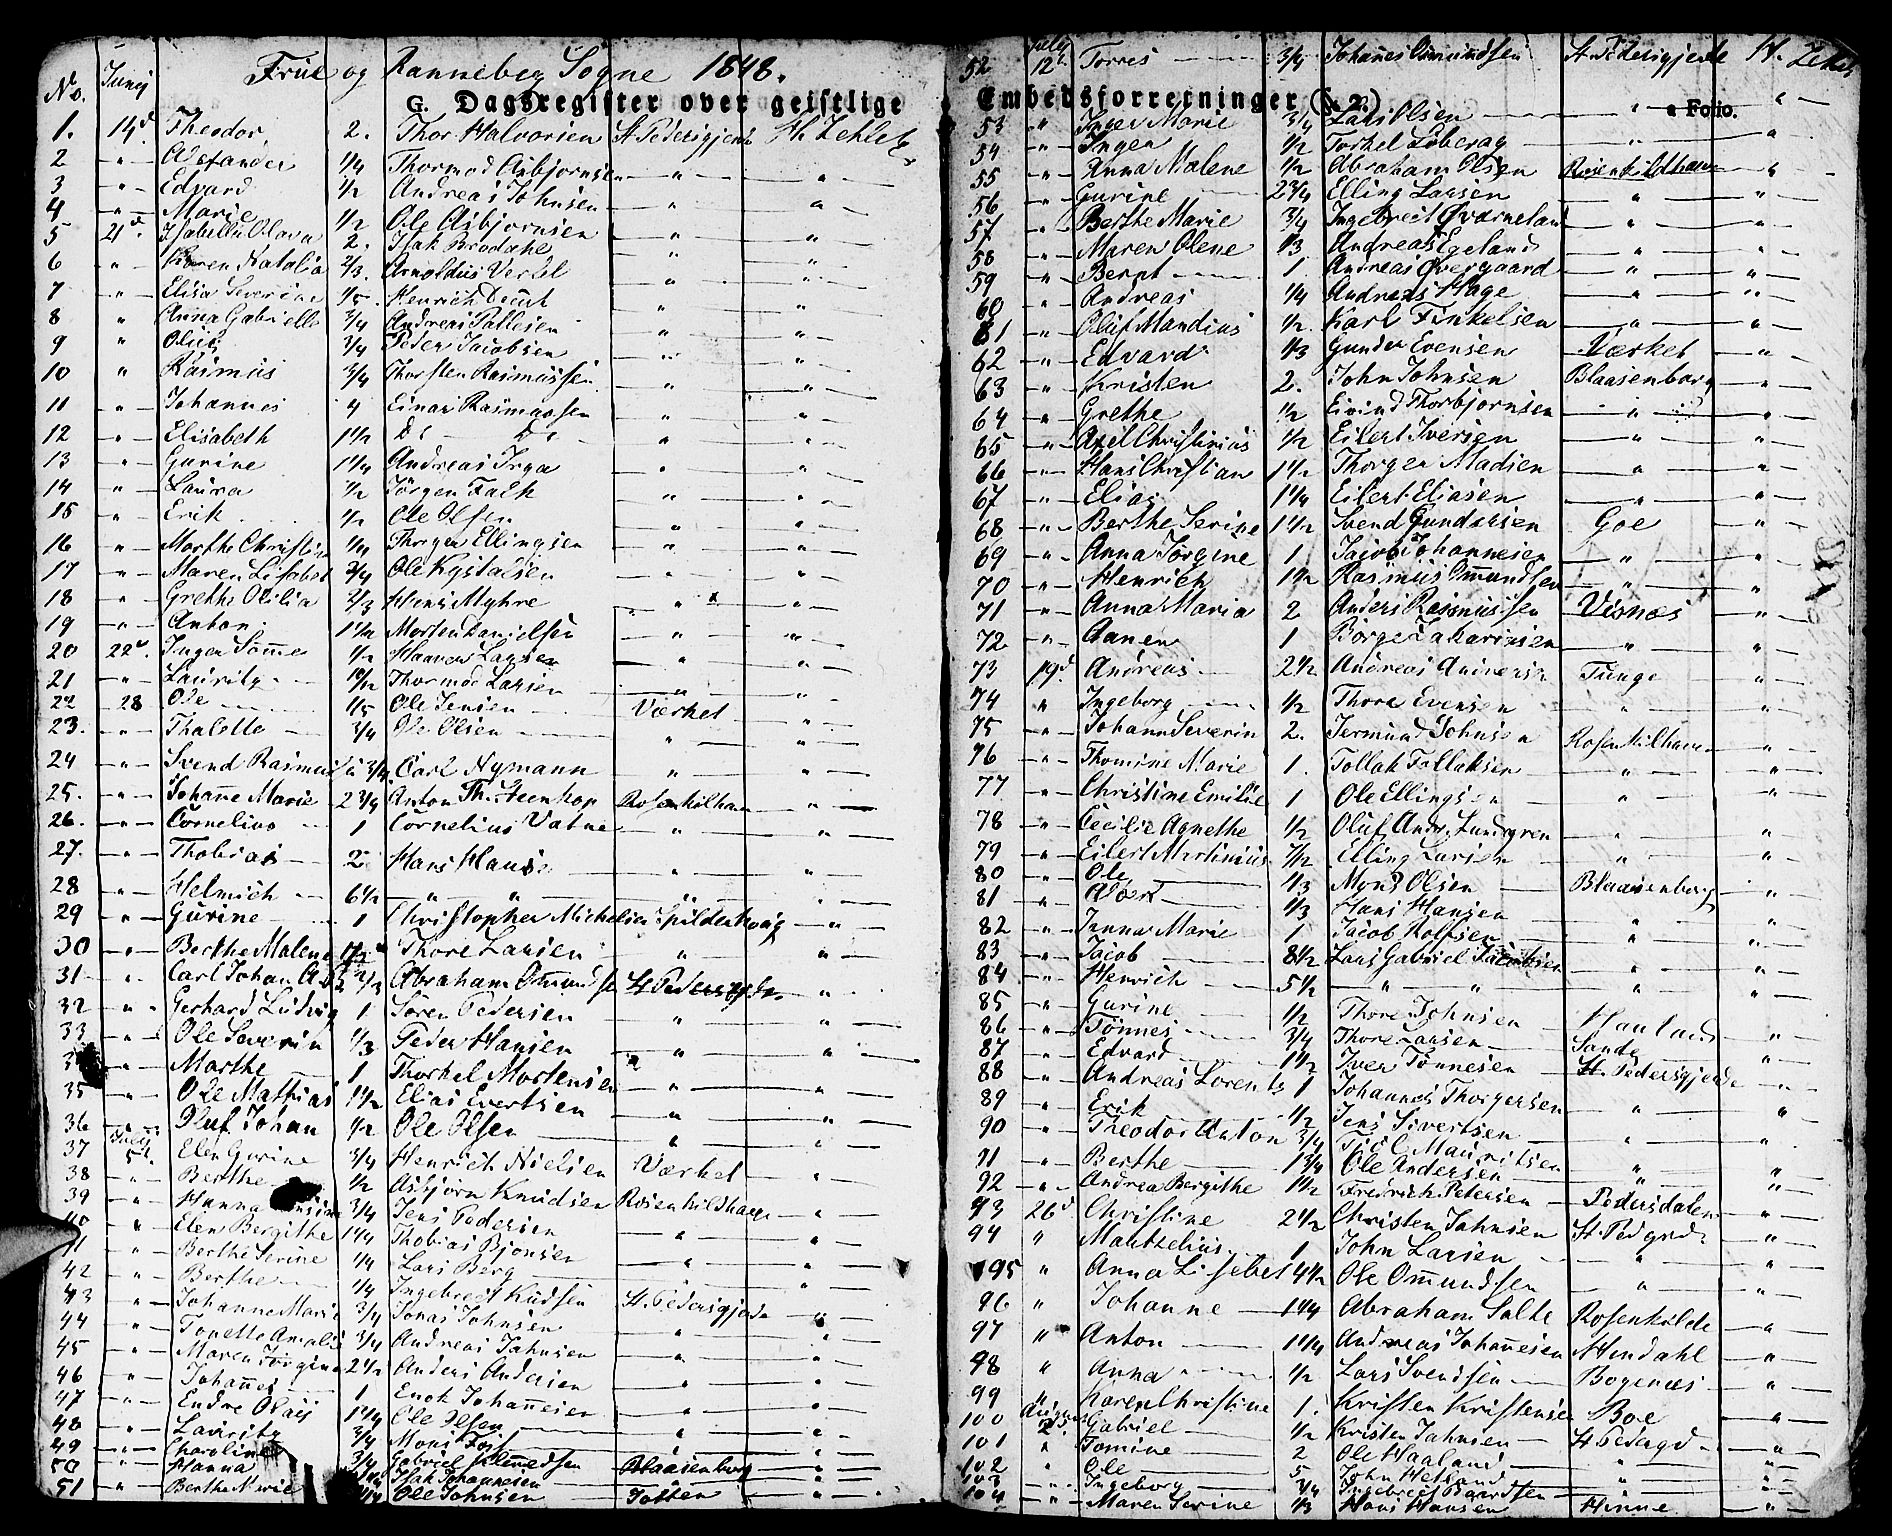 Frue og Ranneberg Sogne 1848.
G. Dagsregister over geistlige Embedsforretninger (§ 2) a Folio.
No. Junij
1. 14d Theodor 2. Thor Halvorsen St Pedersgjerde
2 " Alexander 1/4 Thormod Asbjørnsen " "
3 " Edvard 1/2 Andreas Johnsen " "
4 " Marie 1/2 Ole Asbjørnsen " "
5 21d Isabelle Olava 2. Isak Brodahl " "
6 " Karen Natalia 2/3. Arnoldus Vertel " "
7 " Elisa Severine 1/5. Henrich " "
8 " Anna Gabrielle 3/4 Andreas Pallesen " "
9 " Olius 3/4 Peder Jacobsen " "
10 " Rasmus 3/4 Thorsten Rasmussen " "
11 " Johannes 4 Einar Rasmussen " "
12 " Elisabeth 1 1/2 Do Do " "
13 " Gurine 1 1/4 Andreas Inga " "
14 " Laura 1/2 Jørgen Falk " "
15 " Erik 1/2 Ole Olsen " "
16 " Marthe Christine 1/4 Thorger Ellingsen " "
17 " Maren Lisabet 3/4 Ole Kystalsen " "
18 " Grethe Otilia 2/3 Hans Myhre " "
19 " Anton 1 1/2 Morten Danielsen " "
20 22d. Inger Sømme 1/2 Haaver Larsen " "
21 " Lauritz 1/2 Thormod Larsen " "
22 28 Ole 1/5 Ole Jensen Værket "
23. " Thalette 3/4 Ole Olsen " "
24 " Svend Rasmus 3/4. Carl Nymann " "
25. " Johañe Marie 2 3/4 Anton Th. Steenkop Rosenkilhan "
26. " Cornelius 1 Cornelius Vatne " "
27. " Thobias 2 Hans Hansen " "
28 " Helmich 6 1/2 " " " "
29 " Gurine 1 Christopher Michelsen Spilderhaug "
30 " Berthe Malene 1/2 Thore Larsen " "
31 " Carl Johan 2/3 Abraham Omundse St Pedersgjde. "
32 " Gerhard Ludvig 1 Søren Pedersen " "
33 " Ole Severin 1/3 Peder Hansen " "
3 " Marthe 1 Thorkel Mortensen " "
35 " Ole Mathias 1 1/2 Elias Evertsen " "
36 " Oluf Johan 1/2 Ole Olsen " "
37 July 5d. Elen Gurine 3/4 Henrich Nielsen Værket "
38 " Berthe 1/2 Asbjørn Knudsen Rosenkildhage "
39 " Hanna 3/4 Jens Pedersen " "
40 " Elen Bergithe 1 1/4 Thobias Bjønsen " "
41 " Berthe Serine 1/4 Lars Berg " "
42 " Berthe 1/4 Ingebrect Knudsen St. Pedersgjede "
43 " Johanne Marie 3/4 Jonas Johnsen " "
44 " Tonette Amalie 3/4 Andreas Jahnsen " "
45 " Maren Jørgine 2 1/2 Anders Andersen " "
46 " Johannes 1 Enok Johannesen " "
47 " Endre Olaus 1 1/4 Ole Olsen " "
48 " Lauritz 3/4 Mons Foss " "
49 " Charoline 3/4 Gabriel " "
50 " Hanna Isak Johannesen Blaasenborg "
51 " Berthe Marie 1/4 Ole Johnsen Totten "
52 July 12t. Torres 3/4 Johañes Omundsen St Pedersgjerde
53 " Inger Marie 3/4 Lars Olsen " "
54 " Ingen 1/2 Torkel Löberag " "
55 " Anna Malene 1/2 Abraham Olsen Rosenkildhauen "
56 " Gurine 2 3/4 Elling Larsen " "
57 " Berthe Marie 3/4 Ingebrect Qværneland " "
58 " Maren Olene 1/3 Andreas Egeland " "
59 " Bernt 1. Andreas Øvergaard " "
60 " Andreas 1/4 Andreas Hage " "
61 " Oluf Mandius 1/2. Karl Finkelsen " "
62 " Edvard 1/3 Gunder Evensen Værket "
63 " Kristen 2. John Johnsen Blaasenborg "
64 " Grethe 1/2 Eivind Thorbjørnsen " "
65 " Axel Christinius 1/2 Eilert Iversen " "
66 " Hans Christian 1 1/2 Thorger Madsen " "
67 " Elias 1 1/4 Eilert Eliasen " "
68 " Berthe Serine 1 1/2 Svend Gundersen Goe "
69 " Anna Jørgine 1. Jacob Johannesen " "
70 " Henrich 1 1/2 Rasmus Omundsen " "
71 " Anna Maria 2 Anders Rasmussen Visnæs "
72 " Aanen 1 Børge Zakariasen " "
73 19d. Andreas 2 1/2 Andreas Andersen Tunge "
74 " Ingeborg 1/2 Thore Evensen " "
75 " Johann Severin 2. Jermund Johnsen Rosenkilhauen "
76 " Thomine Marie 1. Tollak Tollaksen " "
77 " Christine Emilie 1 Ole Ellingsen " "
78 " Cecilie Agnethe 1/2 Oluf Andr. Lundgren " "
79 " Eilert Martinius 1/2 Elling Larsen " "
80 " Ole 1/3 Mons Olsen Blaasenborg "
81 " Albert 1/3 Hans Hansen " "
82 " Anna Marie 1 Jacob Rolfsen " "
83 " Jacob 8 1/2 Lars Gabriel Jacobsen " "
84 " Henrich 5 1/2 " " " "
85 " Gurine 1/2 Thore Johnsen Haaland "
86 " Tønnes 3/4 Thore Larsen Sande "
87 " Edvard 1 1/2 Iver Tønnesen St. Pedersgjerde "
88 " Andreas Lorents 1 Johannes Thorgersen " "
89 " Erik 1/2 Jens Sivertsen " "
90 " Theodor Anton 3/4 C. Mauritsen " "
91 " Berthe 1 3/4 Ole Andersen " "
92 " Andrea Bergithe 1 1/2 Fredrich Petersen Pedersdalen "
93 26d Christine 2 1/2 Christen Jahnsen St. Pedgrd "
94 " 1 John Larsen " "
95 " Anna Lisebet 4 1/2 Ole Omundsen " "
96 " Johanne 1 1/4 Abraham Salte Rosenkilde "
97 " Anton 1 1/4 Andreas Johañesen "
98 " Anna 1/2 Lars Svendsen Bogenæs "
99 " Karen Christine 1. Kristen Kristensen Boe "
100 August 2d. Gabriel 1/2 Kristen Jahnsen St Pedagd "
101 " Tomine 2 Ole Haaland " "
102 " Ole 5 John Hetland " "
103 " Ingeborg 3/4 Ingebrect Baardsen " "
104 " Maren Serine 1/3 Hans Hansen Hinne "